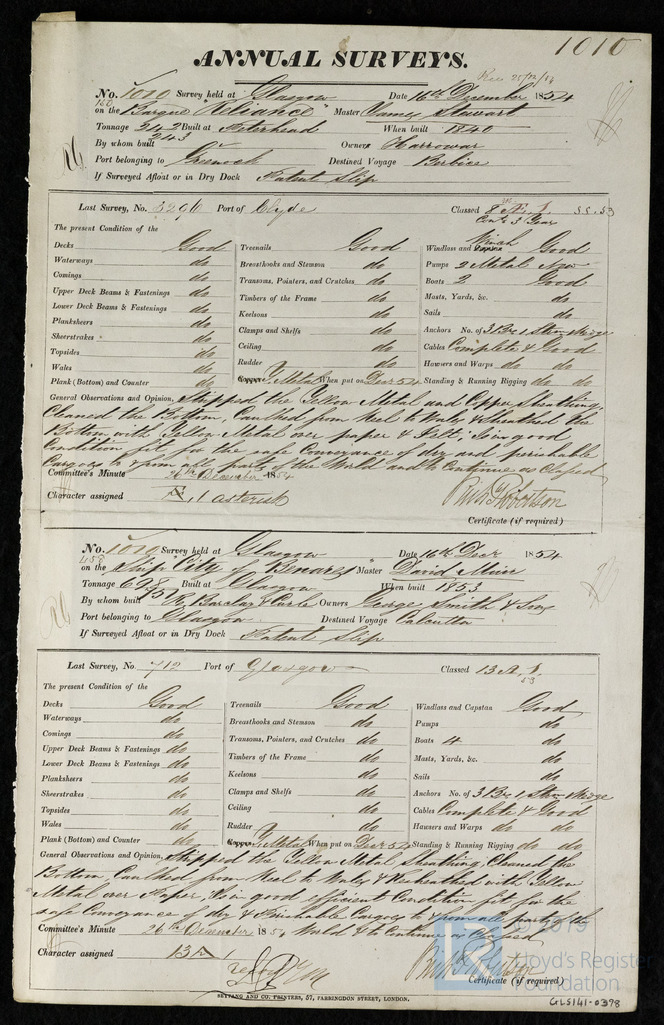 1010
ANNUAL SURVEYS.
Rec 25/12/54
No. 1010 Survey held at Glasgow Date 16th December 1854
160 on the Barque "Reliance" Master James Stewart
Tonnage 242 Built at Peterhead When built 1840
By whom built 243 Owners Harrowar
Port belonging to Greenock Destined Voyage Berbice
If Surveyed Afloat or in Dry Dock Patent Slip
Last Survey, No. 3296 Port of Clyde Classed 8 A.1. 53
Contd 3 Years
The present Condition of the
Decks Good Treenails Good Windlass and Winch Good
Waterways do Breasthooks and Stemson do Pumps 2 Metal New
Comings do Transoms, Pointers, and Crutches do Boats 2 Good
Upper Deck Beams & Fastenings do Timbers of the Frame do Masts, Yards, &c. do
Lower Deck Beams & Fastenings do Keelsons do Sails do
Planksheers do Clamps and Shelfs do Anchors No. of 3 Br, 1 Strm &
Sheerstrakes do Ceiling do Cables Complete & Good
Topsides do Rudder do Hawsers and Warps do do
Wales do Copper Y. Metal When put on Decr 54 Standing & Running Rigging do do
Plank (Bottom) and Counter do
General Observations and Opinion, Stripped the Yellow Metal and Copper Sheathing,
Cleaned the Bottom, Caulked from Keel to Wales & Sheathed the
Bottom with Yellow Metal over paper & Felt: is in good
Condition fit for the safe Conveyance of dry and perishable
Cargoes to & from all parts of the World and to Continue as Classed
Committee's Minute 26th December 1854
Character assigned Æ, 1 asterisk
Robertson
Certificate (if required)
No. 1010 Survey held at Glasgow Date 16th Decr 1854
458 on the Ship "City of Benares" Master David Muir
Tonnage 698 Built at Glasgow When built 1853
By whom built R. Barclay & Curle Owners George Smith & Sons
Port belonging to Glasgow Destined Voyage Calcutta
If Surveyed Afloat or in Dry Dock Patent Slip
Last Survey, No. 712 Port of Glasgow Classed 13 A.1.
53
The present Condition of the
Decks Good Treenails Good Windlass and Capstan Good
Waterways do Breasthooks and Stemson do Pumps do
Comings do Transoms, Pointers, and Crutches do Boats 4 do
Upper Deck Beams & Fastenings do Timbers of the Frame do Masts, Yards, &c. do
Lower Deck Beams & Fastenings do Keelsons do Sails do
Planksheers do Clamps and Shelfs do Anchors No. of 3 Br, 1 Strm &
Sheerstrakes do Ceiling do Cables Complete & Good
Topsides do Rudder do Hawsers and Warps do do
Wales do Copper Y. Metal When put on Decr 54 Standing & Running Rigging do do
Plank (Bottom) and Counter do
General Observations and Opinion, Stripped the Yellow Metal Sheathing, Cleaned the
Bottom, Caulked from Keel to Wales & Resheathed with Yellow
Metal over Paper, is in good efficient Condition fit for the
safe Conveyance of dry & Perishable Cargoes to & from all parts of the
Committee's Minute 26th December 1854 World & to Continue as Classed
Character assigned 13 A
Robertson
Certificate (if required)
SEYFANG AND CO. PRINTERS, 57, FARRINGDON STREET, LONDON.
© 2019
Lloyd's Register
Foundation
GLS141-0398